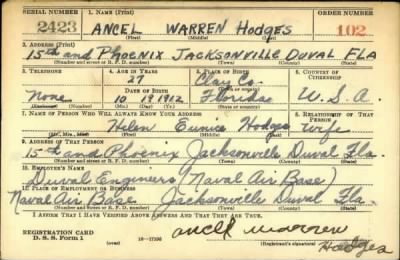 SERIAL NUMBER 1. NAME (Print) ORDER NUMBER
2423 ANCEL WARREN Hodges 102
(First) (Middle) (Last)
2. ADDRESS (Print)
15th and Phoenix JACKSONVILLE DUVAL FLA
(Number and street or R. F. D. number) (Town) (County) (State)
3. TELEPHONE 4. AGE IN YEARS 5. PLACE OF BIRTH 6. COUNTRY OF CITIZENSHIP
27 Clay Co.
DATE OF BIRTH (Town or county)
None 10 19 1912 Florida U.S.A.
(Exchange) (Number) (Mo.) (Day) (Yr.) (State or country)
7. NAME OF PERSON WHO WILL ALWAYS KNOW YOUR ADDRESS 8. RELATIONSHIP OF THAT PERSON
Helen Eunice Hodges Wife
(Mr., Mrs., Miss) (First) (Middle) (Last)
9. ADDRESS OF THAT PERSON
15th and Phoenix Jacksonville Duval Fla.
(Number and street or R. F. D. number) (Town) (County) (State)
10. EMPLOYER'S NAME
Duval Engineers (Naval Air Base)
11. PLACE OF EMPLOYMENT OR BUSINESS
Naval Air Base Jacksonville Duval Fla.
(Number and street or R. F. D. number) (Town) (County) (State)
I AFFIRM THAT I HAVE VERIFIED ABOVE ANSWERS AND THAT THEY ARE TRUE.
REGISTRATION CARD
D. S. S. Form 1 16-17105 ancel warren Hodges
(Registrant's signature)